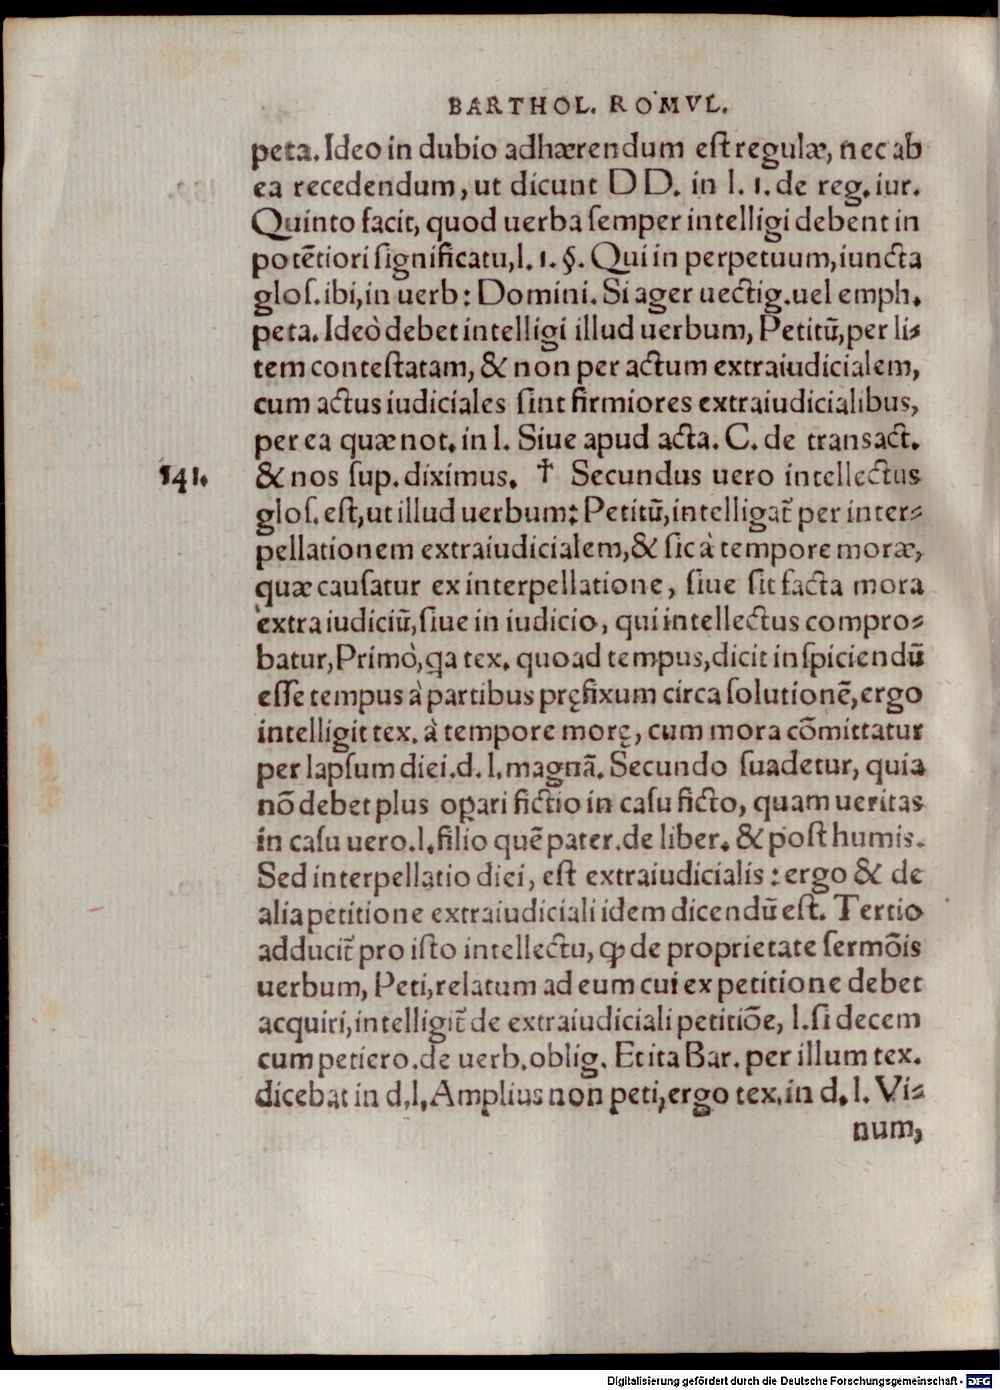 BARTHOL. ROMVL.
peta. Ideo in dubio adhærendum est regulæ, nec ab
ea recedendum, ut dicunt DD. in l. 1. de reg. iur.
Quinto facit, quod uerba semper intelligi debent in
potẽtiori significatu, l. 1. §. Qui in perpetuum, iuncta
glos. ibi, in uerb: Domini. Si ager uectig. uel emph.
peta. Ideò debet intelligi illud uerbum, Petitũ, per li-
tem contestatam, & non per actum extraiudicialem,
cum actus iudiciales sint firmiores extraiudicialibus,
per ea quæ not. in l. Siue apud acta. C. de transact.
141. & nos sup. diximus. † Secundus uero intellectus
glos. est, ut illud uerbum: Petitũ, intelligat̃ per inter-
pellationem extraiudicialem, & sic à tempore moræ,
quæ causatur ex interpellatione, siue sit facta mora
extra iudiciũ, siue in iudicio, qui intellectus compro-
batur, Primò, qa tex. quoad tempus, dicit inspiciendũ
esse tempus à partibus pręfixum circa solutionẽ, ergo
intelligit tex. à tempore morę, cum mora cõmittatur
per lapsum diei. d. l. magnã. Secundo suadetur, quia
nõ debet plus oꝑari fictio in casu ficto, quam ueritas
in casu uero. l. filio quẽ pater. de liber. & posthumis.
Sed interpellatio diei, est extraiudicialis: ergo & de
alia petitione extraiudiciali idem dicendũ est. Tertio
adducit̃ pro isto intellectu, ꝙ de proprietate sermõis
uerbum, Peti, relatum ad eum cui ex petitione debet
acquiri, intelligit̃ de extraiudiciali petitiõe, l. si decem
cum petiero. de uerb. oblig. Et ita Bar. per illum tex.
dicebat in d. l. Amplius non peti, ergo tex. in d. l. Vi-
num,
Digitalisierung gefördert durch die Deutsche Forschungsgemeinschaft - DFG